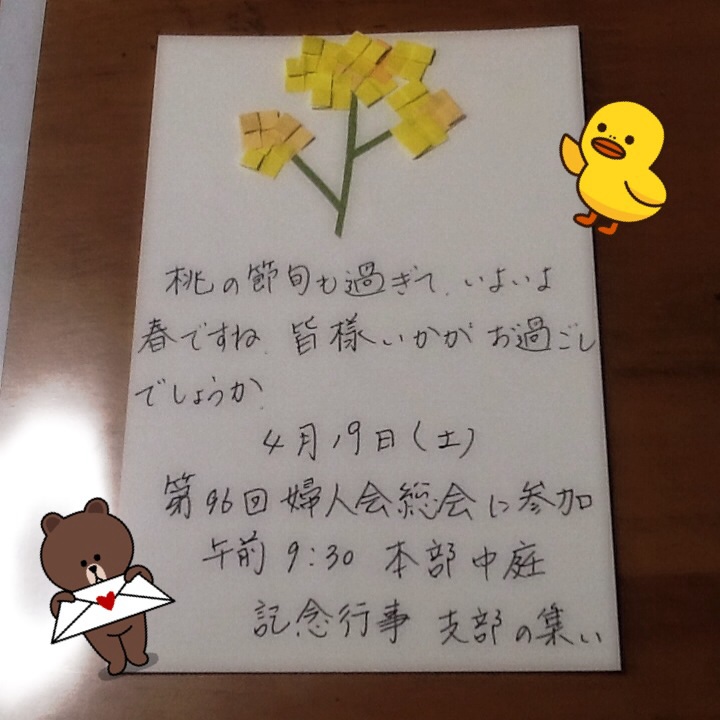 桃の節句も過ぎて、いよいよ
春ですね、皆様いかがお過ごし
でしょうか、
4月19日(土)
第96回婦人会総会に参加
午前9:30 本部中庭
記念行事 支部の集い